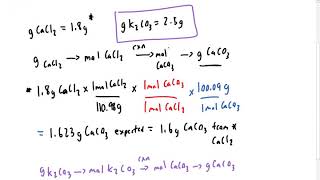 g CaCl₂ = 1.8g *
g K₂CO₃ = 2.5g
g CaCl₂ → mol CaCl₂ rxn → mol CaCO₃ → g CaCO₃
* 1.8g CaCl₂ × 1mol CaCl₂ / 110.98g × 1mol CaCO₃ / 1mol CaCl₂ × 100.09 g / 1mol CaCO₃
= 1.623 g CaCO₃ expected = 1.6g CaCO₃ from * CaCl₂
g K₂CO₃ → mol K₂CO₃ rxn → mol CaCO₃ → g CaCO₃